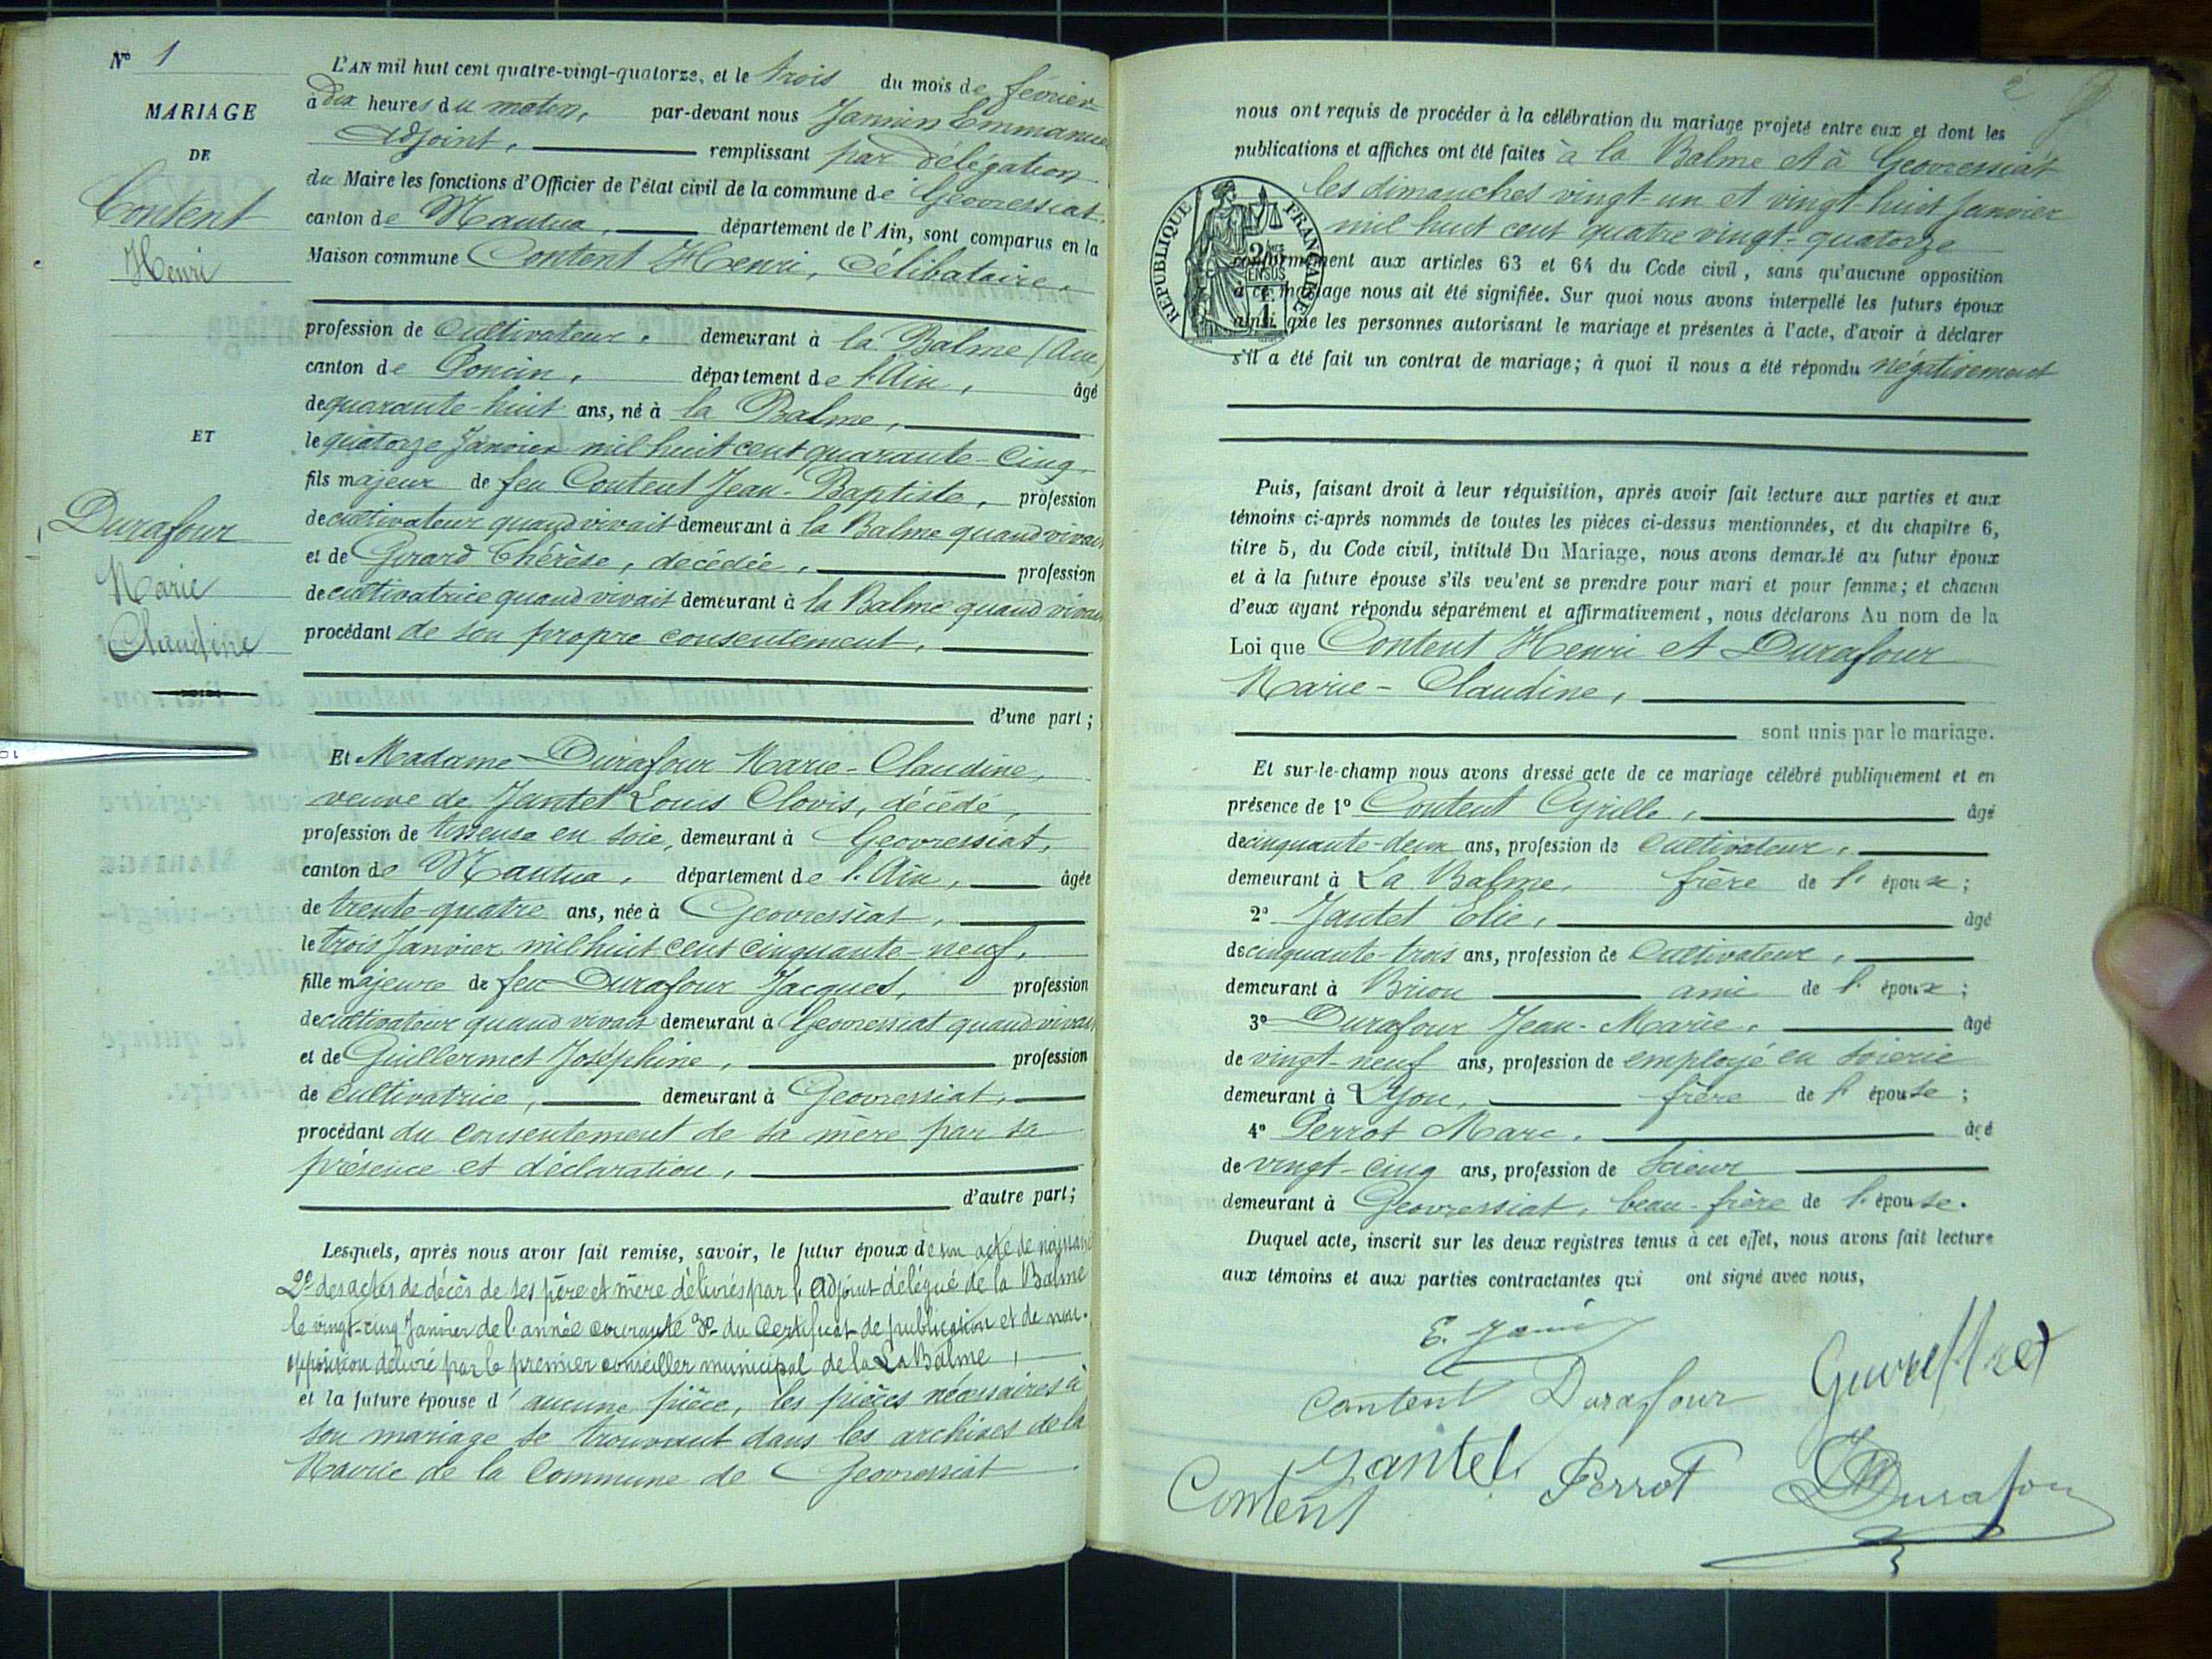 N° 1
MARIAGE
DE
Content
Henri
ET
Durafour
Marie
Claudine
L'AN mil huit cent quatre-vingt-quatorze, et le trois du mois de février
à dix heures du matin, par-devant nous Jannin Emmanuel
Adjoint, remplissant par délégation
du Maire les fonctions d'Officier de l'état civil de la commune de Geovressiat,
canton de Nantua, département de l'Ain, sont comparus en la
Maison commune Content Henri, Célibataire,
profession de cultivateur, demeurant à la Balme (Ain)
canton de Poncin, département de l'Ain, âgé
de quarante-huit ans, né à la Balme,
le quatorze Janvier mil huit cent quarante-cinq
fils majeur de feu Content Jean-Baptiste, profession
de cultivateur quand vivait demeurant à la Balme quand vivait
et de Girard Thérèse, décédée, profession
de cultivatrice quand vivait demeurant à la Balme quand vivait
procédant de son propre consentement,
d'une part;
Et Madame Durafour Marie-Claudine,
veuve de Jantet Louis Clovis, décédé,
profession de tisseuse en soie, demeurant à Geovressiat,
canton de Nantua, département de l'Ain, âgée
de trente-quatre ans, née à Geovressiat,
le trois Janvier mil huit cent cinquante-neuf,
fille majeure de feu Durafour Jacques, profession
de cultivateur quand vivait demeurant à Geovressiat quand vivait
et de Guillermet Joséphine, profession
de cultivatrice, demeurant à Geovressiat,
procédant du consentement de sa mère par sa
présence et déclaration,
d'autre part;
Lesquels, après nous avoir fait remise, savoir, le futur époux de son acte de naissance
2° des actes de décès de ses père et mère délivrés par l'adjoint délégué de la Balme
le vingt-cinq Janvier de l'année courante 3° du Certificat de publication et de non-
opposition délivré par le premier conseiller municipal de la La Balme,
et la future épouse d'aucune pièce, les pièces nécessaires à
son mariage se trouvant dans les archives de la
Mairie de la Commune de Geovressiat
2
nous ont requis de procéder à la célébration du mariage projeté entre eux et dont les
publications et affiches ont été faites à la Balme et à Geovressiat
les dimanches vingt-un et vingt-huit Janvier
mil huit cent quatre vingt-quatorze
RÉPUBLIQUE FRANÇAISE
conformément aux articles 63 et 64 du Code civil, sans qu'aucune opposition
à ce mariage nous ait été signifiée. Sur quoi nous avons interpellé les futurs époux
ainsi que les personnes autorisant le mariage et présentes à l'acte, d'avoir à déclarer
s'il a été fait un contrat de mariage; à quoi il nous a été répondu négativement
Puis, faisant droit à leur réquisition, après avoir fait lecture aux parties et aux
témoins ci-après nommés de toutes les pièces ci-dessus mentionnées, et du chapitre 6,
titre 5, du Code civil, intitulé Du Mariage, nous avons demandé au futur époux
et à la future épouse s'ils veulent se prendre pour mari et pour femme; et chacun
d'eux ayant répondu séparément et affirmativement, nous déclarons Au nom de la
Loi que Content Henri et Durafour
Marie-Claudine,
sont unis par le mariage.
Et sur-le-champ nous avons dressé acte de ce mariage célébré publiquement et en
présence de 1° Content Cyrille, âgé
de cinquante-deux ans, profession de cultivateur,
demeurant à La Balme, frère de l'époux;
2° Jantet Elie, âgé
de cinquante-trois ans, profession de cultivateur,
demeurant à Brion ami de l'époux;
3° Durafour Jean-Marie, âgé
de vingt-neuf ans, profession de employé en soierie
demeurant à Lyon, frère de l'épouse;
4° Perrot Marc, âgé
de vingt-cinq ans, profession de scieur
demeurant à Geovressiat, beau-frère de l'épouse.
Duquel acte, inscrit sur les deux registres tenus à cet effet, nous avons fait lecture
aux témoins et aux parties contractantes qui ont signé avec nous,
E. Janin
Content Durafour
Jantet Perrot Durafour
Content